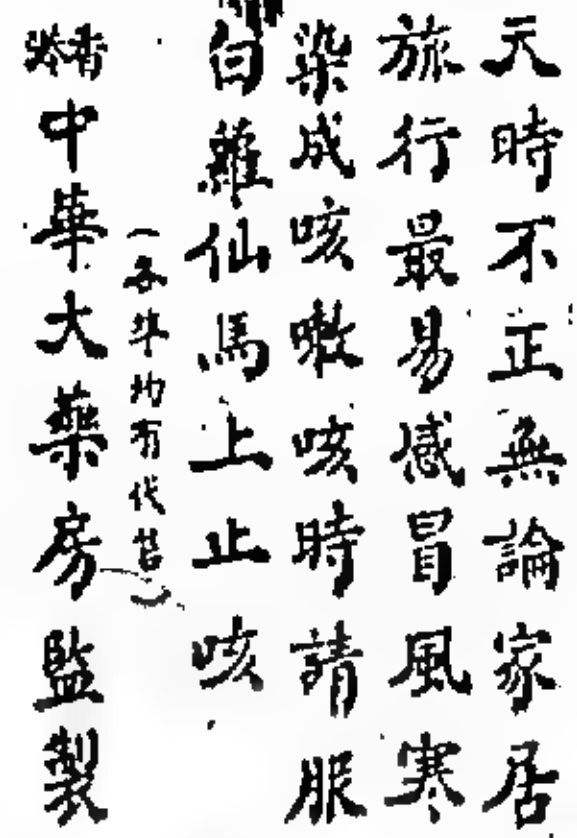 天時不正無論家居
旅行最易感冒風寒
染成咳嗽咳時請服
白蘿仙馬上止咳
(各埠均有代售)
香港中華大藥房監製